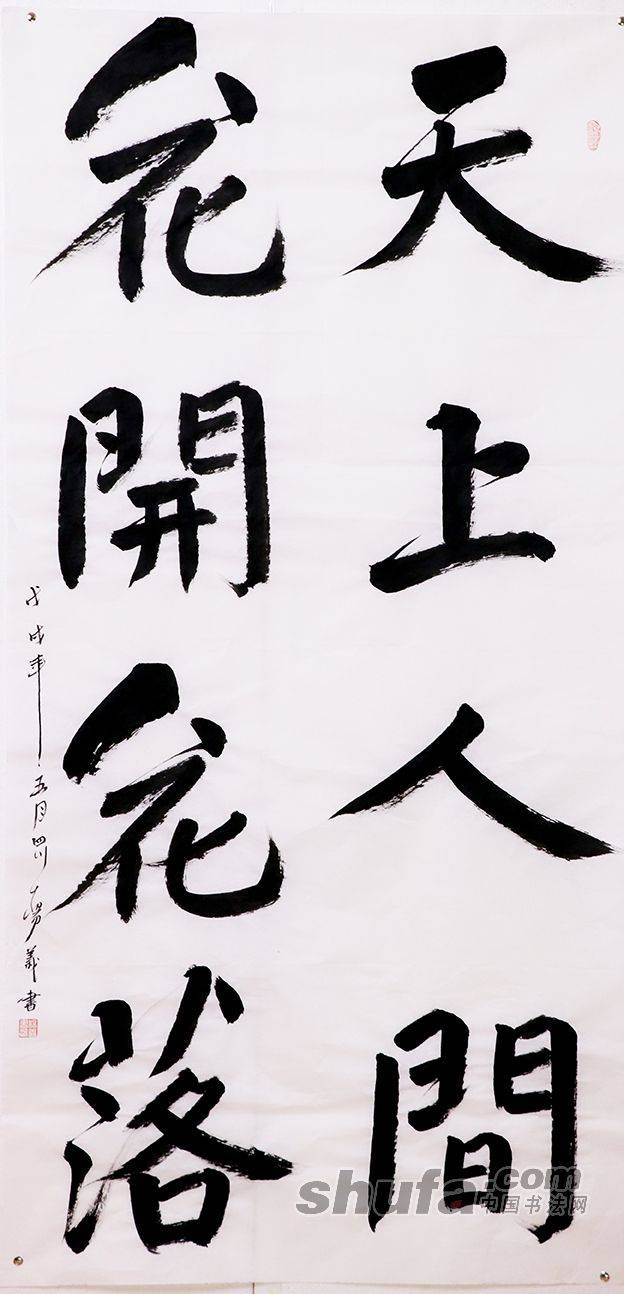 天上人間
花開花落
戊戌年五月四川楊義書
shufa.com
中国书法网